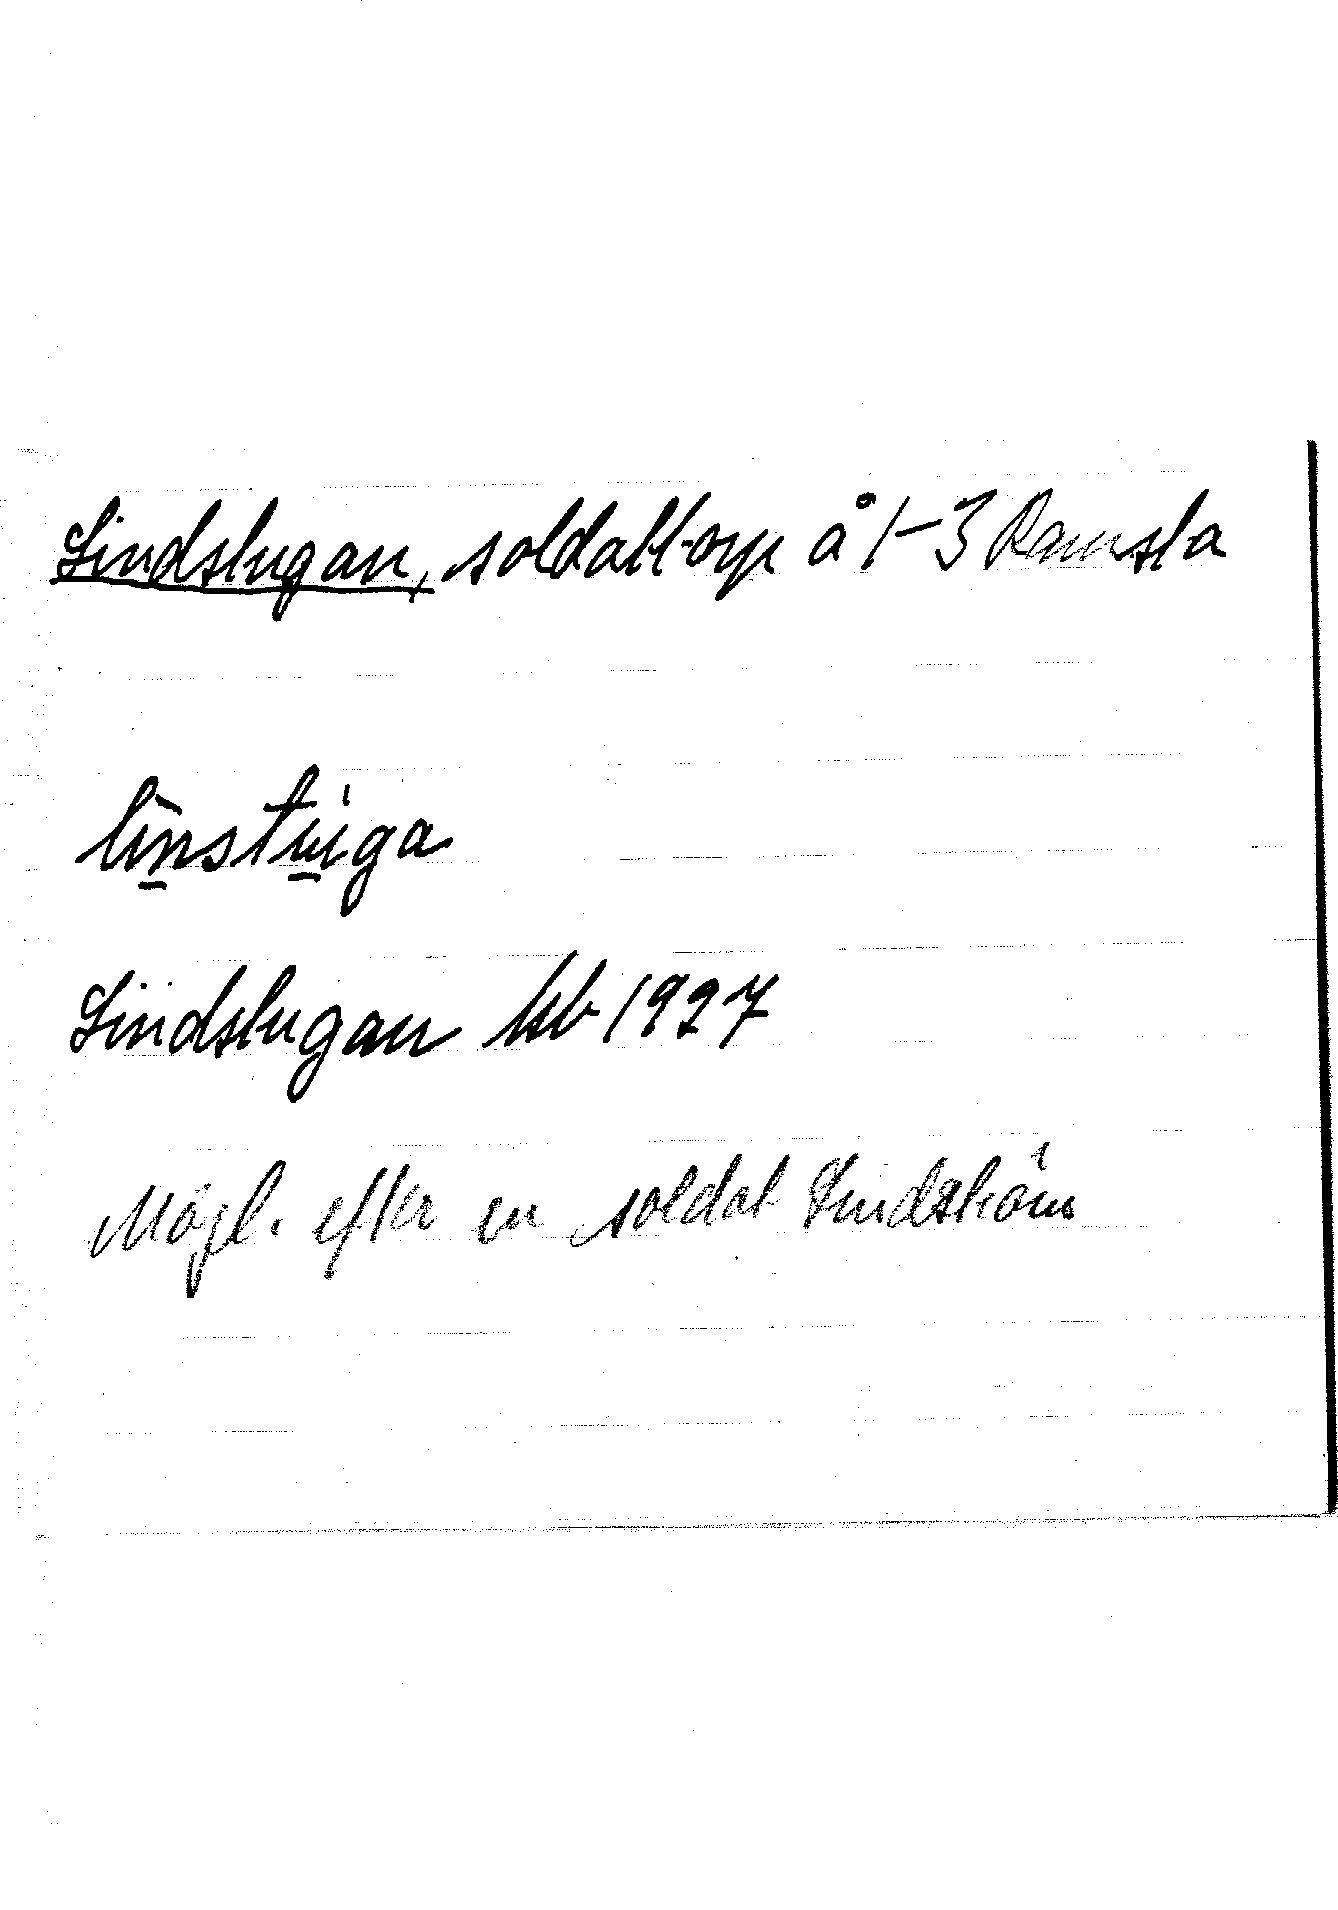 Lindstugan, soldattorp å 1-3 Ramsta
li̠nstu̠ga
Lindstugan 1927
Möjl. efter en soldat Lindström